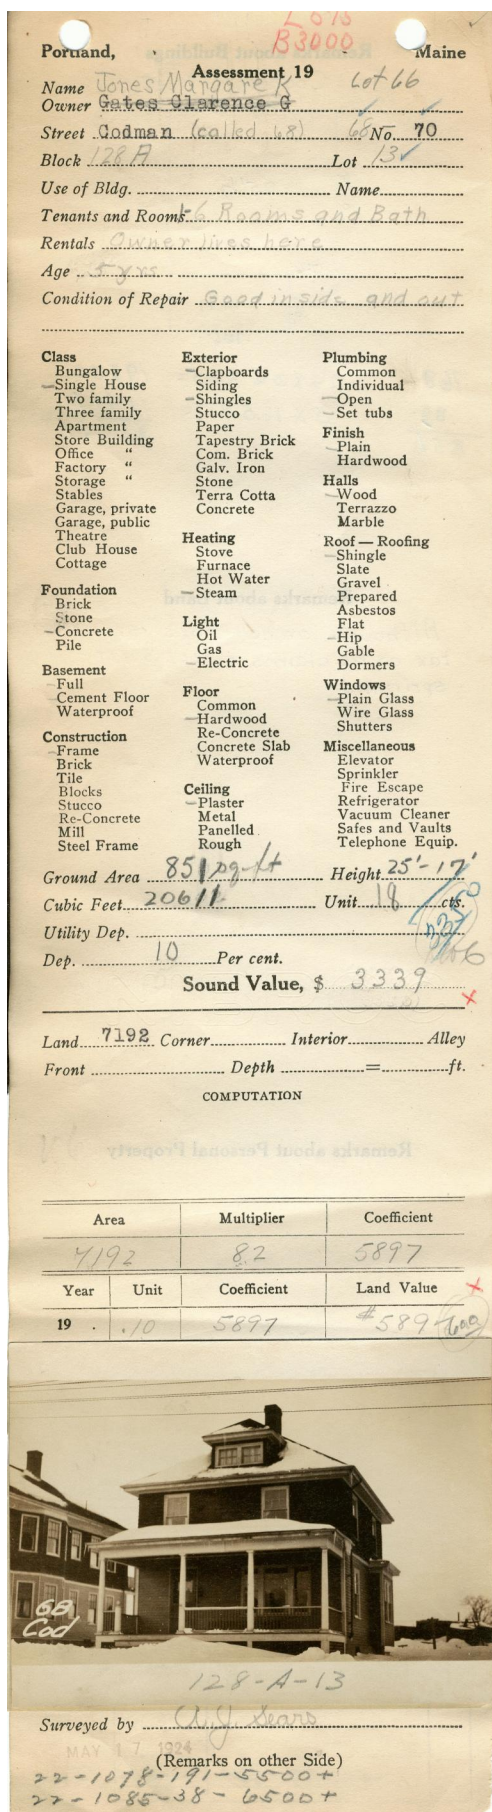 B3000
Portland, Maine
Assessment 19
Name Jones Margaret K Lot 66
Owner Gates Clarence G
Street Codman (called 68) 68 No. 70
Block 128 A Lot 13
Use of Bldg. Name
Tenants and Rooms 1-6 Rooms and Bath
Rentals Owner lives here
Age 5 yrs
Condition of Repair Good inside and out
Class
Bungalow
Single House
Two family
Three family
Apartment
Store Building
Office "
Factory "
Storage "
Stables
Garage, private
Garage, public
Theatre
Club House
Cottage
Foundation
Brick
Stone
Concrete
Pile
Basement
Full
Cement Floor
Waterproof
Construction
Frame
Brick
Tile
Blocks
Stucco
Re-Concrete
Mill
Steel Frame
Exterior
Clapboards
Siding
Shingles
Stucco
Paper
Tapestry Brick
Com. Brick
Galv. Iron
Stone
Terra Cotta
Concrete
Heating
Stove
Furnace
Hot Water
Steam
Light
Oil
Gas
Electric
Floor
Common
Hardwood
Re-Concrete
Concrete Slab
Waterproof
Ceiling
Plaster
Metal
Panelled
Rough
Plumbing
Common
Individual
Open
Set tubs
Finish
Plain
Hardwood
Halls
Wood
Terrazzo
Marble
Roof — Roofing
Shingle
Slate
Gravel
Prepared
Asbestos
Flat
Hip
Gable
Dormers
Windows
Plain Glass
Wire Glass
Shutters
Miscellaneous
Elevator
Sprinkler
Fire Escape
Refrigerator
Vacuum Cleaner
Safes and Vaults
Telephone Equip.
Ground Area 851 sq-ft Height 25'-17'
Cubic Feet 20611 Unit 18 cts.
Utility Dep.
Dep. 10 Per cent.
Sound Value, $ 3339
Land 7192 Corner Interior Alley
Front Depth = ft.
COMPUTATION
Remarks about Personal Property
Area Multiplier Coefficient
7192 82 5897
Year Unit Coefficient Land Value
19 . .10 5897 $589 600
68
Cod
128-A-13
Surveyed by A J Sears
MAY 17 1924
(Remarks on other Side)
22-1078-191-5500+
22-1085-38-6500+